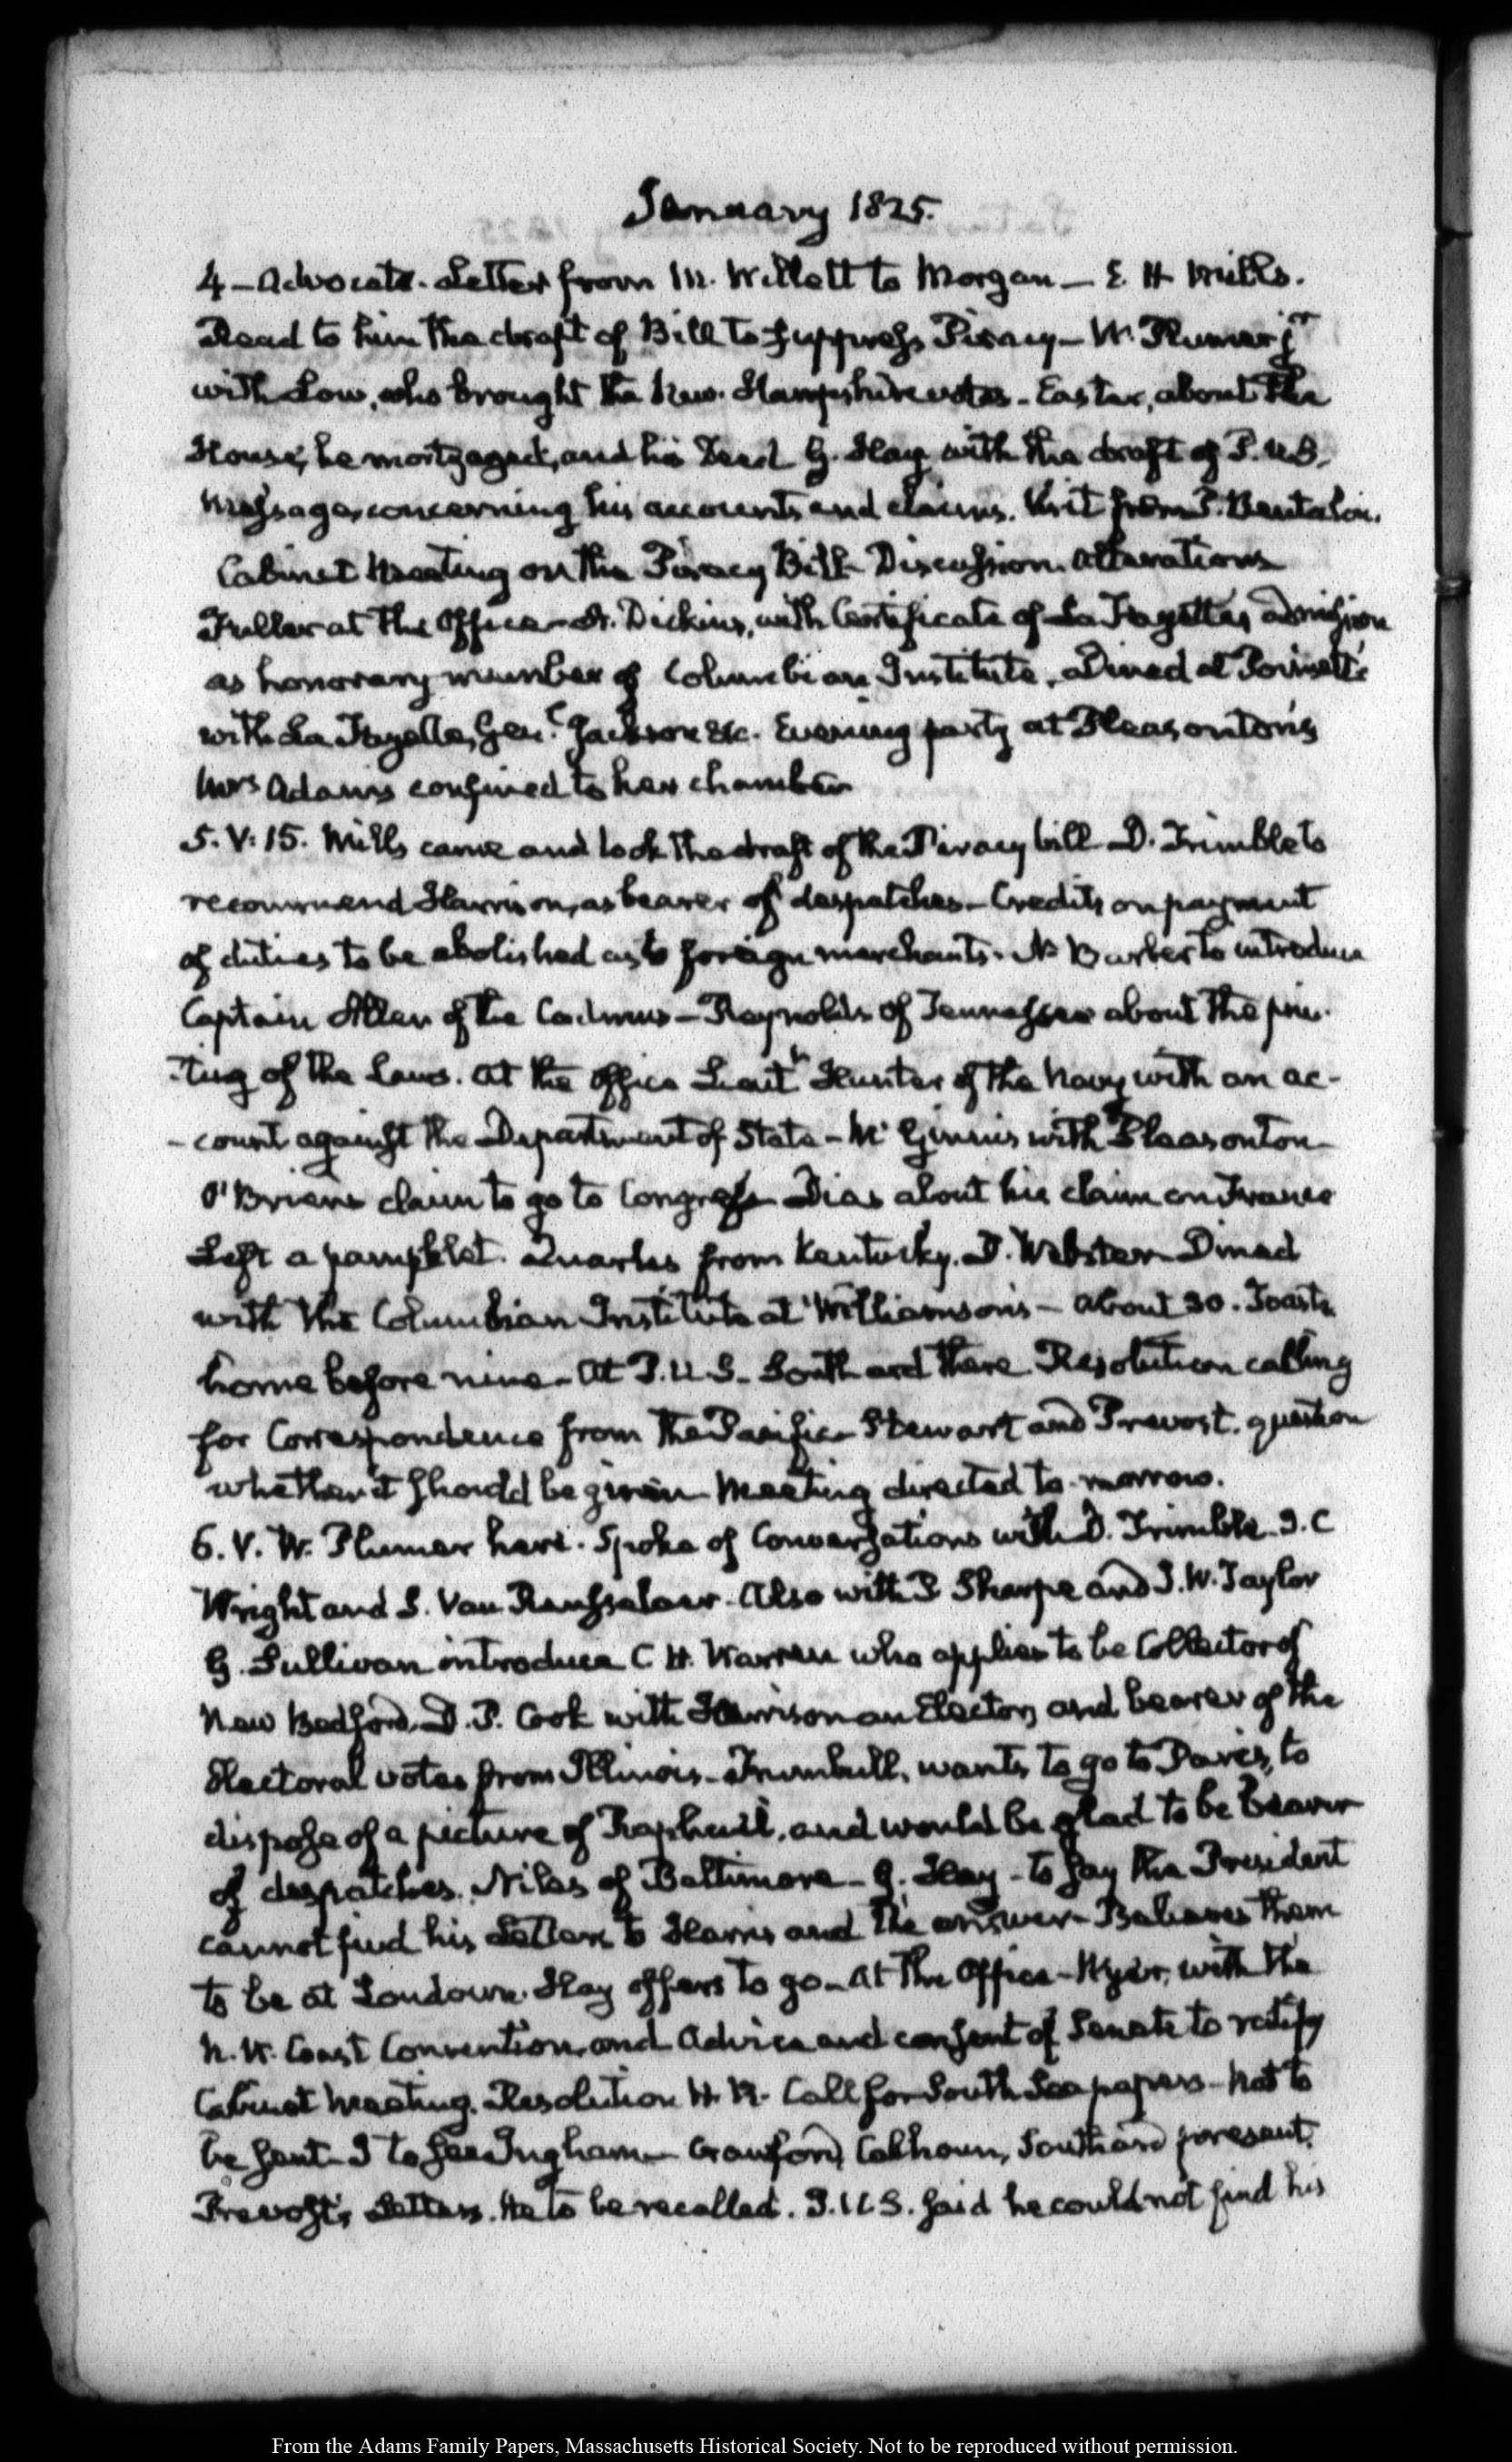 January 1825.
4 – Advocate. Letter from M. Willett to Morgan — E. H Mills.
Read to him the draft of Bill to suppress Piracy – W. Plumer jr
with Low, who brought the New. Hampshire votes – Easter, about the
House, he mortgaged, and his Deed G. Hay with the draft of P. U.S.
Message, concerning his accounts and claims. Visit from P. Bentalou.
Cabinet Meeting on the Piracy Bill – Discussion. Alterations
Fuller at the Office – A. Dickins, with Certificate of La Fayette's admission
as honorary member of Columbian Institute. Dined at Poinsett's
with La Fayette, Genl. Jackson &c. Evening party at Pleasonton's
Mrs Adams confined to her chamber
5. V: 15. Mills came and took the draft of the Piracy bill – D. Trimble to
recommend Harrison, as bearer of despatches – Credits on payment
of duties to be abolished as to foreign merchants. N Barber to introduce
Captain Allen of the Cadmus – Reynolds of Tennessee about the prin-
-ting of the Laws. At the Office Lieutt Hunter of the Navy with an ac-
-count against the Department of State – Mc Ginnis with Pleasonton
O'Briens claim to go to Congress Dias about his claim on France
Left a pamphlet. Quarles from Kentucky. D. Webster – Dined
with the Columbian Institute at Williamson's – about 30. Toasts
home before nine – At P. U.S – Southard there. Resolution calling
for Correspondence from the Pacific – Stewart and Prevost. question
whether it should be given – Meeting directed to-morrow.
6. V. W. Plumer here. Spoke of Conversations with D. Trimble – J. C
Wright and S. Van Rensselaer. Also with P Sharpe and J. W. Taylor
G. Sullivan introduces C H. Warren who applies to be Collector of
New Bedford – D. P. Cook with Harrison an Elector, and bearer of the
Electoral votes from Illinois – Trumbull, wants to go to Paris, to
dispose of a picture of Raphael, and would be glad to be bearer
of despatches. Niles of Baltimore – G. Hay – to say the President
cannot find his Letters to Harris and the answer – Believes them
to be at Loudoun. Hay offers to go – At the Office – Wyer, with the
N. W. Coast Convention, and Advice and consent of Senate to ratify
Cabinet Meeting. Resolution H. R. Call for South Sea papers – Not to
be sent – I to see Ingham – Crawford, Calhoun, Southard present.
Prevost's Letters. He to be recalled. P. U.S. said he could not find his
From the Adams Family Papers, Massachusetts Historical Society. Not to be reproduced without permission.